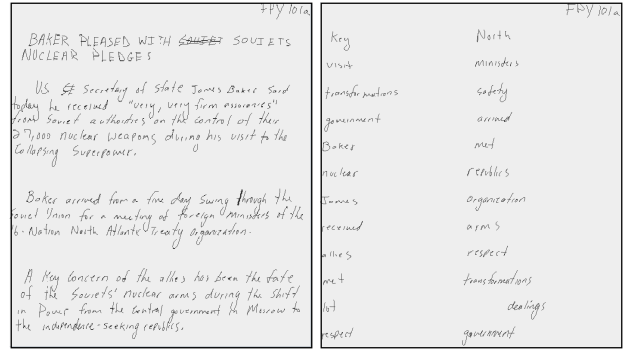 FPY 101a
BAKER PLEASED WITH SOVIETS
NUCLEAR PLEDGES
US Secretary of State James Baker said
today he received "very, very firm assurances"
from Soviet authorities on the control of their
27,000 nuclear weapons during his visit to the
Collapsing Superpower.
Baker arrived from a five day Swing through the
Soviet Union for a meeting of foreign ministers of the
16-Nation North Atlantic Treaty Organization.
A Key Concern of the allies has been the fate
of the Soviets' nuclear arms during the Shift
in Power from the Central government in Moscow to
the independence-seeking republics.
FPY 101a
Key North
visit ministers
transformations safety
government arrived
Baker met
nuclear republics
James Organization
received arms
allies respect
met transformations
lot dealings
respect government